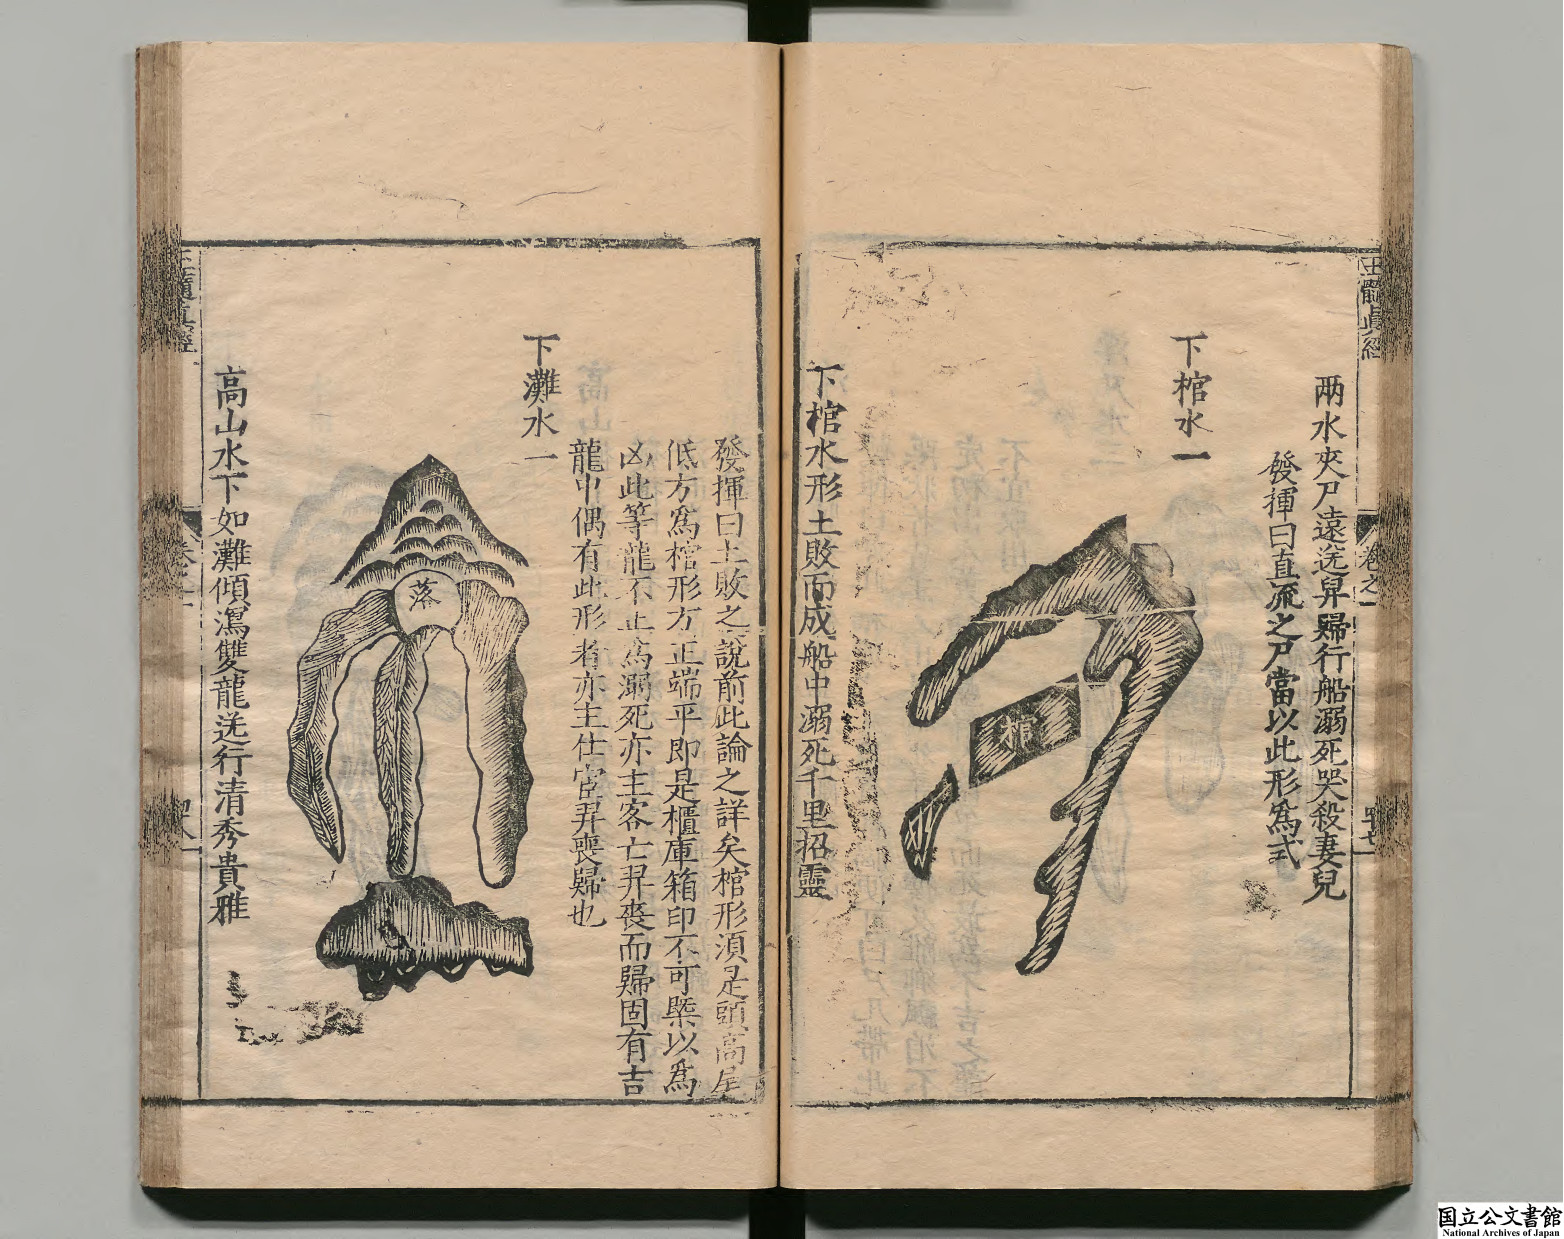 玉髓眞經
卷之一
兩水夾尸遠送舁歸行船溺死哭殺妻兒
發揮曰直流之尸當以此形爲式
下棺水一
棺
下棺水形土敗而成船中溺死千里招靈
發揮曰土敗之說前此論之詳矣棺形須是頭高尾
低方爲棺形方正端平即是櫃庫箱印不可槩以爲
凶此等龍不止爲溺死亦主客亡舁喪而歸固有吉
龍中偶有此形者亦主仕宦舁喪歸也
下灘水一
落
高山水下如灘傾瀉雙龍送行清秀貴雅
玉髓眞經
国立公文書館
National Archives of Japan